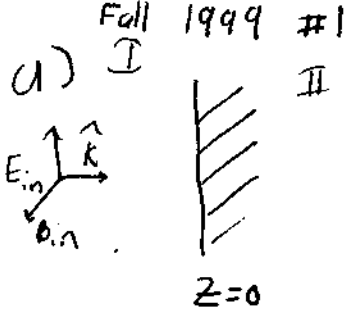 Fall 1999 #1
a) I II
E_in k̂
B_in
z=0